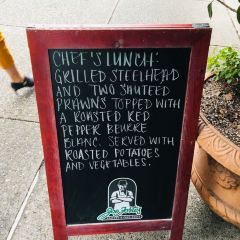 CHEF'S LUNCH:
GRILLED STEELHEAD
AND TWO SAUTEED
PRAWNS TOPPED WITH
A ROASTED RED
PEPPER BEURRE
BLANC. SERVED WITH
ROASTED POTATOES
AND VEGETABLES.